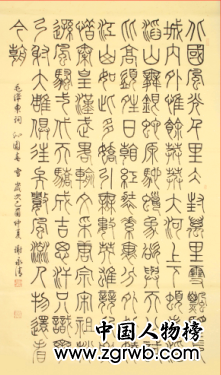 北國風光千里冰封萬里雪飄望長
城内外惟餘莽莽大河上下頓失滔
滔山舞銀蛇原馳蠟象欲與天公試比
高須晴日看紅裝素裹分外妖嬈
江山如此多嬌引無數英雄競折腰
惜秦皇漢武略輸文采唐宗宋祖稍
遜風騷一代天驕成吉思汗只識彎
弓射大雕俱往矣數風流人物還看
今朝
毛澤東詞 沁園春 雪 歲次乙酉仲夏
中国人物榜
www.zgrwb.com